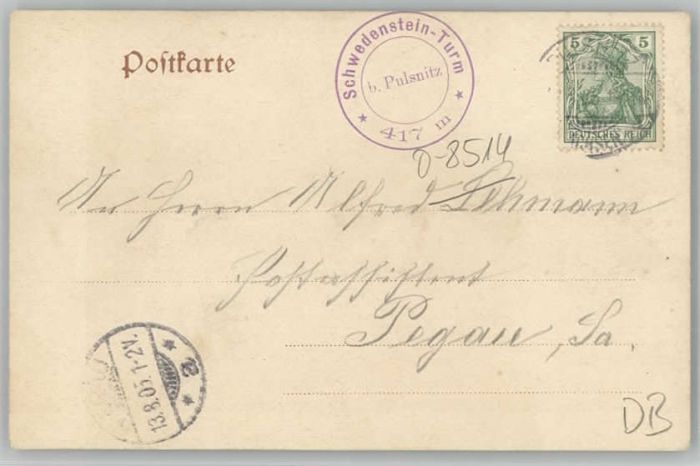 Postkarte
Schwedenstein-Turm
b. Pulsnitz
* 417 m *
5 5
DEUTSCHES REICH
D-8514
An Herrn Alfred Lehmann
Postassistent
Pegau, Sa.
13.8.05. 1-2V.
DB